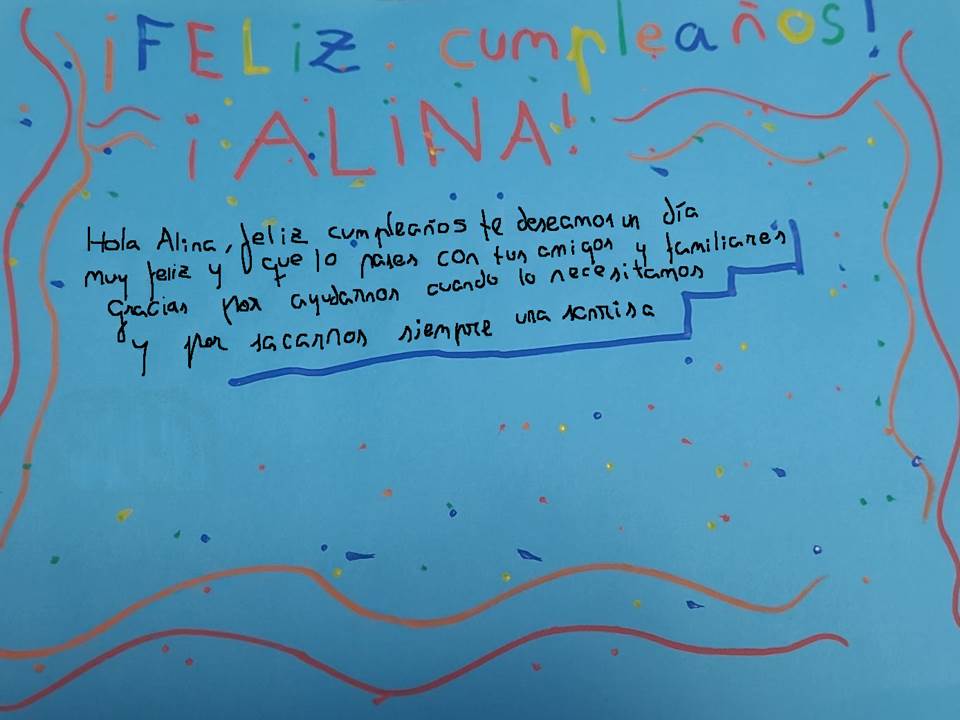 ¡FELiZ: cumpleaños!
¡ALiNA!
Hola Alina, feliz cumpleaños te deseamos un día
muy feliz y que lo pases con tus amigos y familiares
Gracias por ayudarnos cuando lo necesitamos
y por sacarnos siempre una sonrisa